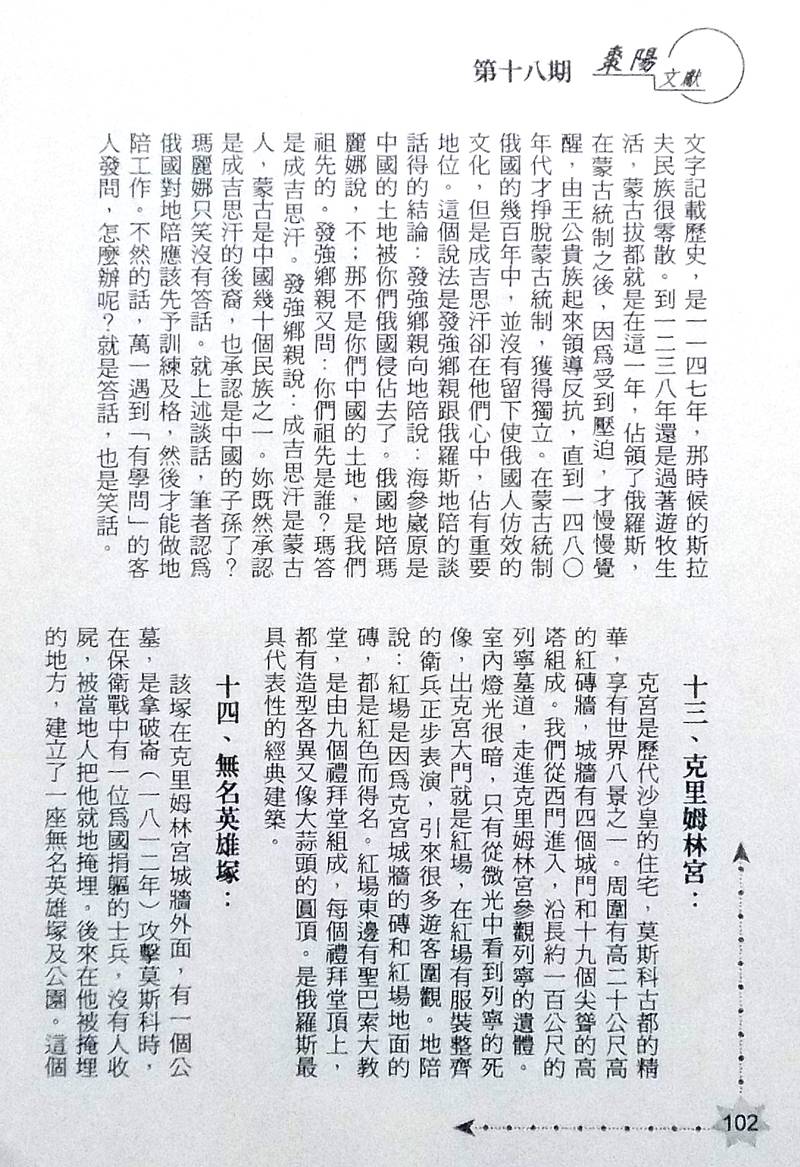 第十八期
棗陽
文獻
文字記載歷史，是一一四七年，那時候的斯拉
夫民族很零散。到一二三八年還是過著遊牧生
活，蒙古拔都就是在這一年，佔領了俄羅斯，
在蒙古統制之後，因為受到壓迫，才慢慢覺
醒，由王公貴族起來領導反抗，直到一四八〇
年代才掙脫蒙古統制，獲得獨立。在蒙古統制
俄國的幾百年中，並沒有留下使俄國人仿效的
文化，但是成吉思汗卻在他們心中，佔有重要
地位。這個說法是發強鄉親跟俄羅斯地陪的談
話得的結論：發強鄉親向地陪說：海參崴原是
中國的土地被你們俄國侵佔去了。俄國地陪瑪
麗娜說，不；那不是你們中國的土地，是我們
祖先的。發強鄉親又問：你們祖先是誰？瑪答
是成吉思汗。發強鄉親說：成吉思汗是蒙古
人，蒙古是中國幾十個民族之一。妳既然承認
是成吉思汗的後裔，也承認是中國的子孫了？
瑪麗娜只笑沒有答話。就上述談話，筆者認為
俄國對地陪應該先予訓練及格，然後才能做地
陪工作。不然的話，萬一遇到「有學問」的客
人發問，怎麼辦呢？就是答話，也是笑話。
十三、克里姆林宮：
克宮是歷代沙皇的住宅，莫斯科古都的精
華，享有世界八景之一。周圍有高二十公尺高
的紅磚牆，城牆有四個城門和十九個尖聳的高
塔組成。我們從西門進入，沿長約一百公尺的
列寧墓道，走進克里姆林宮參觀列寧的遺體。
室內燈光很暗，只有從微光中看到列寧的死
像，出克宮大門就是紅場，在紅場有服裝整齊
的衛兵正步表演，引來很多遊客圍觀。地陪
說：紅場是因為克宮城牆的磚和紅場地面的
磚，都是紅色而得名。紅場東邊有聖巴索大教
堂，是由九個禮拜堂組成，每個禮拜堂頂上，
都有造型各異又像大蒜頭的圓頂。是俄羅斯最
具代表性的經典建築。
十四、無名英雄塚：
該塚在克里姆林宮城牆外面，有一個公
墓，是拿破崙（一八一二年）攻擊莫斯科時，
在保衛戰中有一位為國捐軀的士兵，沒有人收
屍，被當地人把他就地掩埋。後來在他被掩埋
的地方，建立了一座無名英雄塚及公園。這個
102